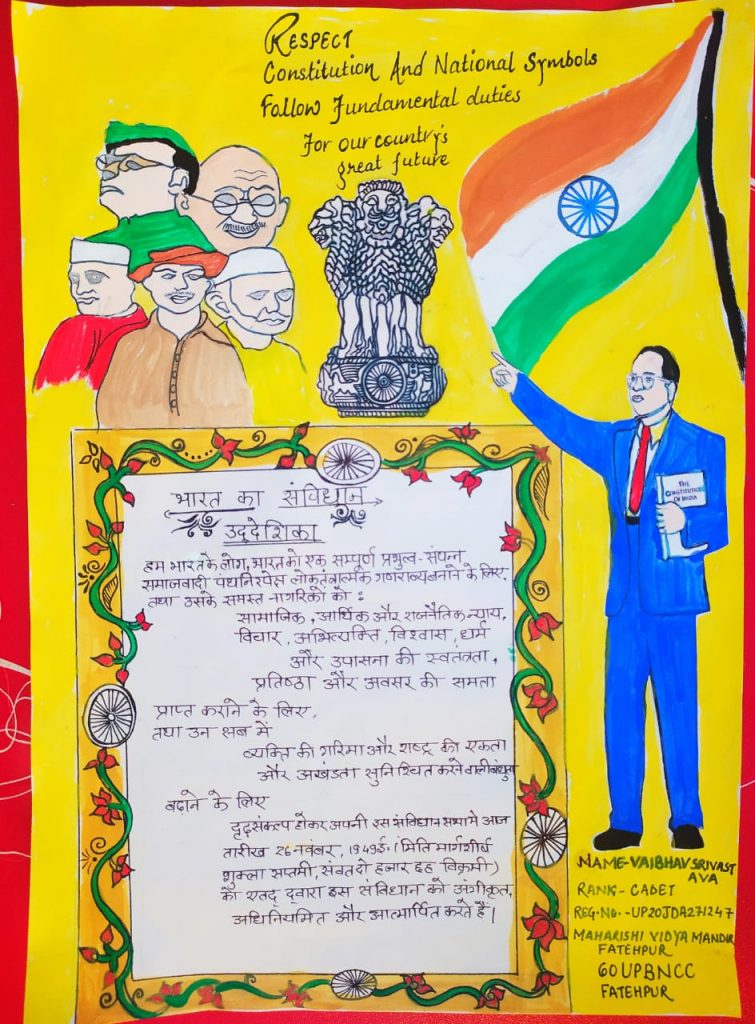 RESPECT
Constitution And National Symbols
Follow Fundamental duties
For our country's
great future
THE
CONSTITUTION
OF INDIA
भारत का संविधान
उद्देशिका
हम भारत के लोग, भारत को एक सम्पूर्ण प्रभुत्व-संपन्न
समाजवादी पंथनिरपेक्ष लोकतंत्रात्मक गणराज्य बनाने के लिए,
तथा उसके समस्त नागरिको को :
सामाजिक, आर्थिक और राजनैतिक न्याय,
विचार, अभिव्यक्ति, विश्वास, धर्म
और उपासना की स्वतंत्रता,
प्रतिष्ठा और अवसर की समता
प्राप्त कराने के लिए,
तथा उन सब में
व्यक्ति की गरिमा और राष्ट्र की एकता
और अखंडता सुनिश्चित करने वाली बंधुता
बढ़ाने के लिए
दृढ़संकल्प होकर अपनी इस संविधान सभा मे आज
तारीख 26 नवंबर, 1949ई॰ (मिति मार्गशीर्ष
शुक्ला सप्तमी, संवत दो हजार छह विक्रमी)
को एतद् द्वारा इस संविधान को अंगीकृत,
अधिनियमित और आत्मार्पित करते हैं।
NAME-VAIBHAV SRIVAST
AVA
RANK- CADET
REG.No.-UP20JDA271247
MAHARISHI VIDYA MANDIR
FATEHPUR
60UPBNCC
FATEHPUR